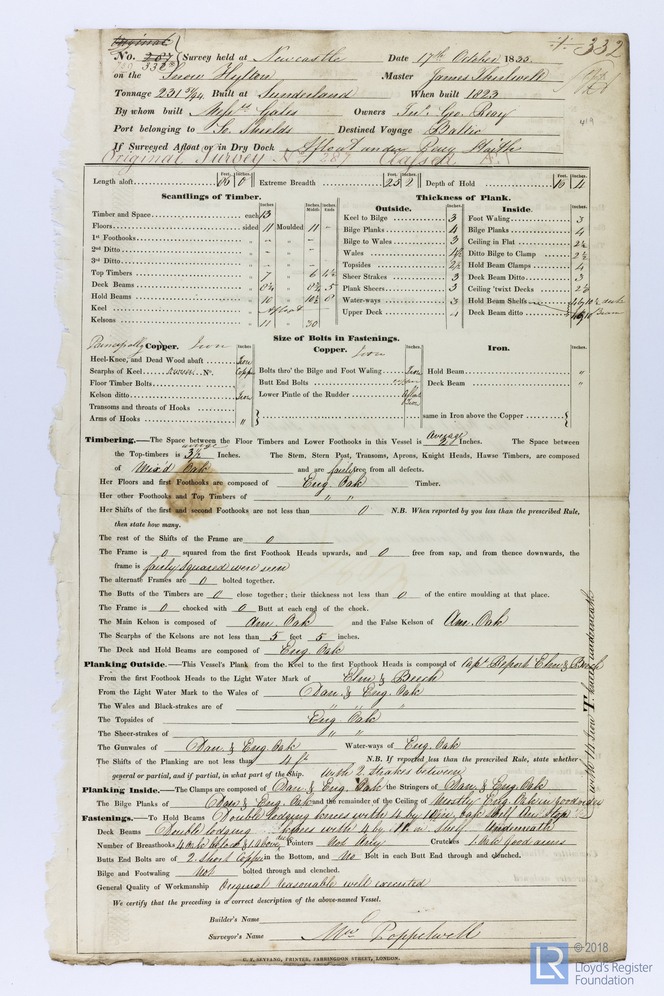 Original
No. 287 Survey held at Newcastle Date 17th October 1835
332
on the Snow Hylton Master James
Tonnage 231 Built at Sunderland When built 1823
By whom built Messrs Gales Owners Jno. Geo.
Port belonging to So. Shields Destined Voyage Baltic
If Surveyed Afloat or in Dry Dock Afloat and under
Original Survey No 287 A.1
Length aloft Feet. Inches. Extreme Breadth Feet. Inches. 23 2 Depth of Hold Feet. Inches.
Scantlings of Timber.
Timber and Space each 13
Floors sided 11 Moulded 11
1st Foothooks
2nd Ditto
3rd Ditto
Top Timbers 7 6
Deck Beams
Hold Beams 10
Keel Afloat
Kelsons 11 30
Thickness of Plank.
Outside. Inches. Inside. Inches.
Keel to Bilge 3 Foot Waling 3
Bilge Planks 4 Bilge Planks 4
Bilge to Wales 3 Ceiling in Flat 2½
Wales 4½ Ditto Bilge to Clamp 2½
Topsides 2½ Hold Beam Clamps 4
Sheer Strakes 3 Deck Beam Ditto 3
Plank Sheers 3 Ceiling 'twixt Decks
Water-ways 3 Hold Beam Shelfs
Upper Deck Deck Beam ditto
Size of Bolts in Fastenings.
Principally Copper. Iron Copper. Iron Iron.
Heel-Knee, and Dead Wood abaft Iron
Scarphs of Keel No. Copp Bolts thro' the Bilge and Foot Waling Iron Hold Beam "
Floor Timber Bolts Butt End Bolts Deck Beam "
Kelson ditto Iron Lower Pintle of the Rudder Afloat
Transoms and throats of Hooks
Arms of Hooks " same in Iron above the Copper
Timbering.—The Space between the Floor Timbers and Lower Foothooks in this Vessel is Average 2 Inches. The Space between
the Top-timbers is 3½ Inches. The Stem, Stern Post, Transoms, Aprons, Knight Heads, Hawse Timbers, are composed
of Mix'd Oak and are fairly free from all defects.
Her Floors and first Foothooks are composed of Eng. Oak Timber.
Her other Foothooks and Top Timbers of " "
Her Shifts of the first and second Foothooks are not less than 0 N.B. When reported by you less than the prescribed Rule,
then state how many.
The rest of the Shifts of the Frame are 0
The Frame is 0 squared from the first Foothook Heads upwards, and 0 free from sap, and from thence downwards, the
frame is fairly squared were seen
The alternate Frames are 0 bolted together.
The Butts of the Timbers are 0 close together; their thickness not less than 0 of the entire moulding at that place.
The Frame is 0 chocked with 0 Butt at each end of the chock.
The Main Kelson is composed of Am. Oak and the False Kelson of Am. Oak
The Scarphs of the Kelsons are not less than 5 feet 5 inches.
The Deck and Hold Beams are composed of Eng. Oak
Planking Outside.—This Vessel's Plank from the Keel to the first Foothook Heads is composed of Capt. Report Elm & Beech
From the first Foothook Heads to the Light Water Mark of Elm & Beech
From the Light Water Mark to the Wales of Dan. & Eng. Oak
The Wales and Black-strakes are of " " "
The Topsides of Eng. Oak
The Sheer-strakes of " "
The Gunwales of Dan. & Eng. Oak Water-ways of Eng. Oak
The Shifts of the Planking are not less than 4 ft N.B. If reported less than the prescribed Rule, state whether
general or partial, and if partial, in what part of the Ship. with 2 strakes between
Planking Inside.—The Clamps are composed of Dan. & Eng. Oak the Stringers of Dan. & Eng. Oak
The Bilge Planks of Dan. & Eng. Oak and the remainder of the Ceiling of Mostly Eng. Oak in good order
Fastenings.—To Hold Beams Double lodging knees with 4 by 10 in. oak shelf
Deck Beams Double lodging knees with 4 by 11 in. shelf Underneath
Number of Breasthooks 4 oak below & 1 above Pointers Not Any Crutches 1 oak good arms
Butts End Bolts are of 2 Short Copp. in the Bottom, and No Bolt in each Butt End through and clenched.
Bilge and Footwaling Not bolted through and clenched.
General Quality of Workmanship Original reasonable well executed
We certify that the preceding is a correct description of the above-named Vessel.
Builder's Name
Surveyor's Name Wm Poppelwell
C. F. SEYFANG, PRINTER, FARRINGDON STREET, LONDON.
LR
©2018
Lloyd's Register
Foundation